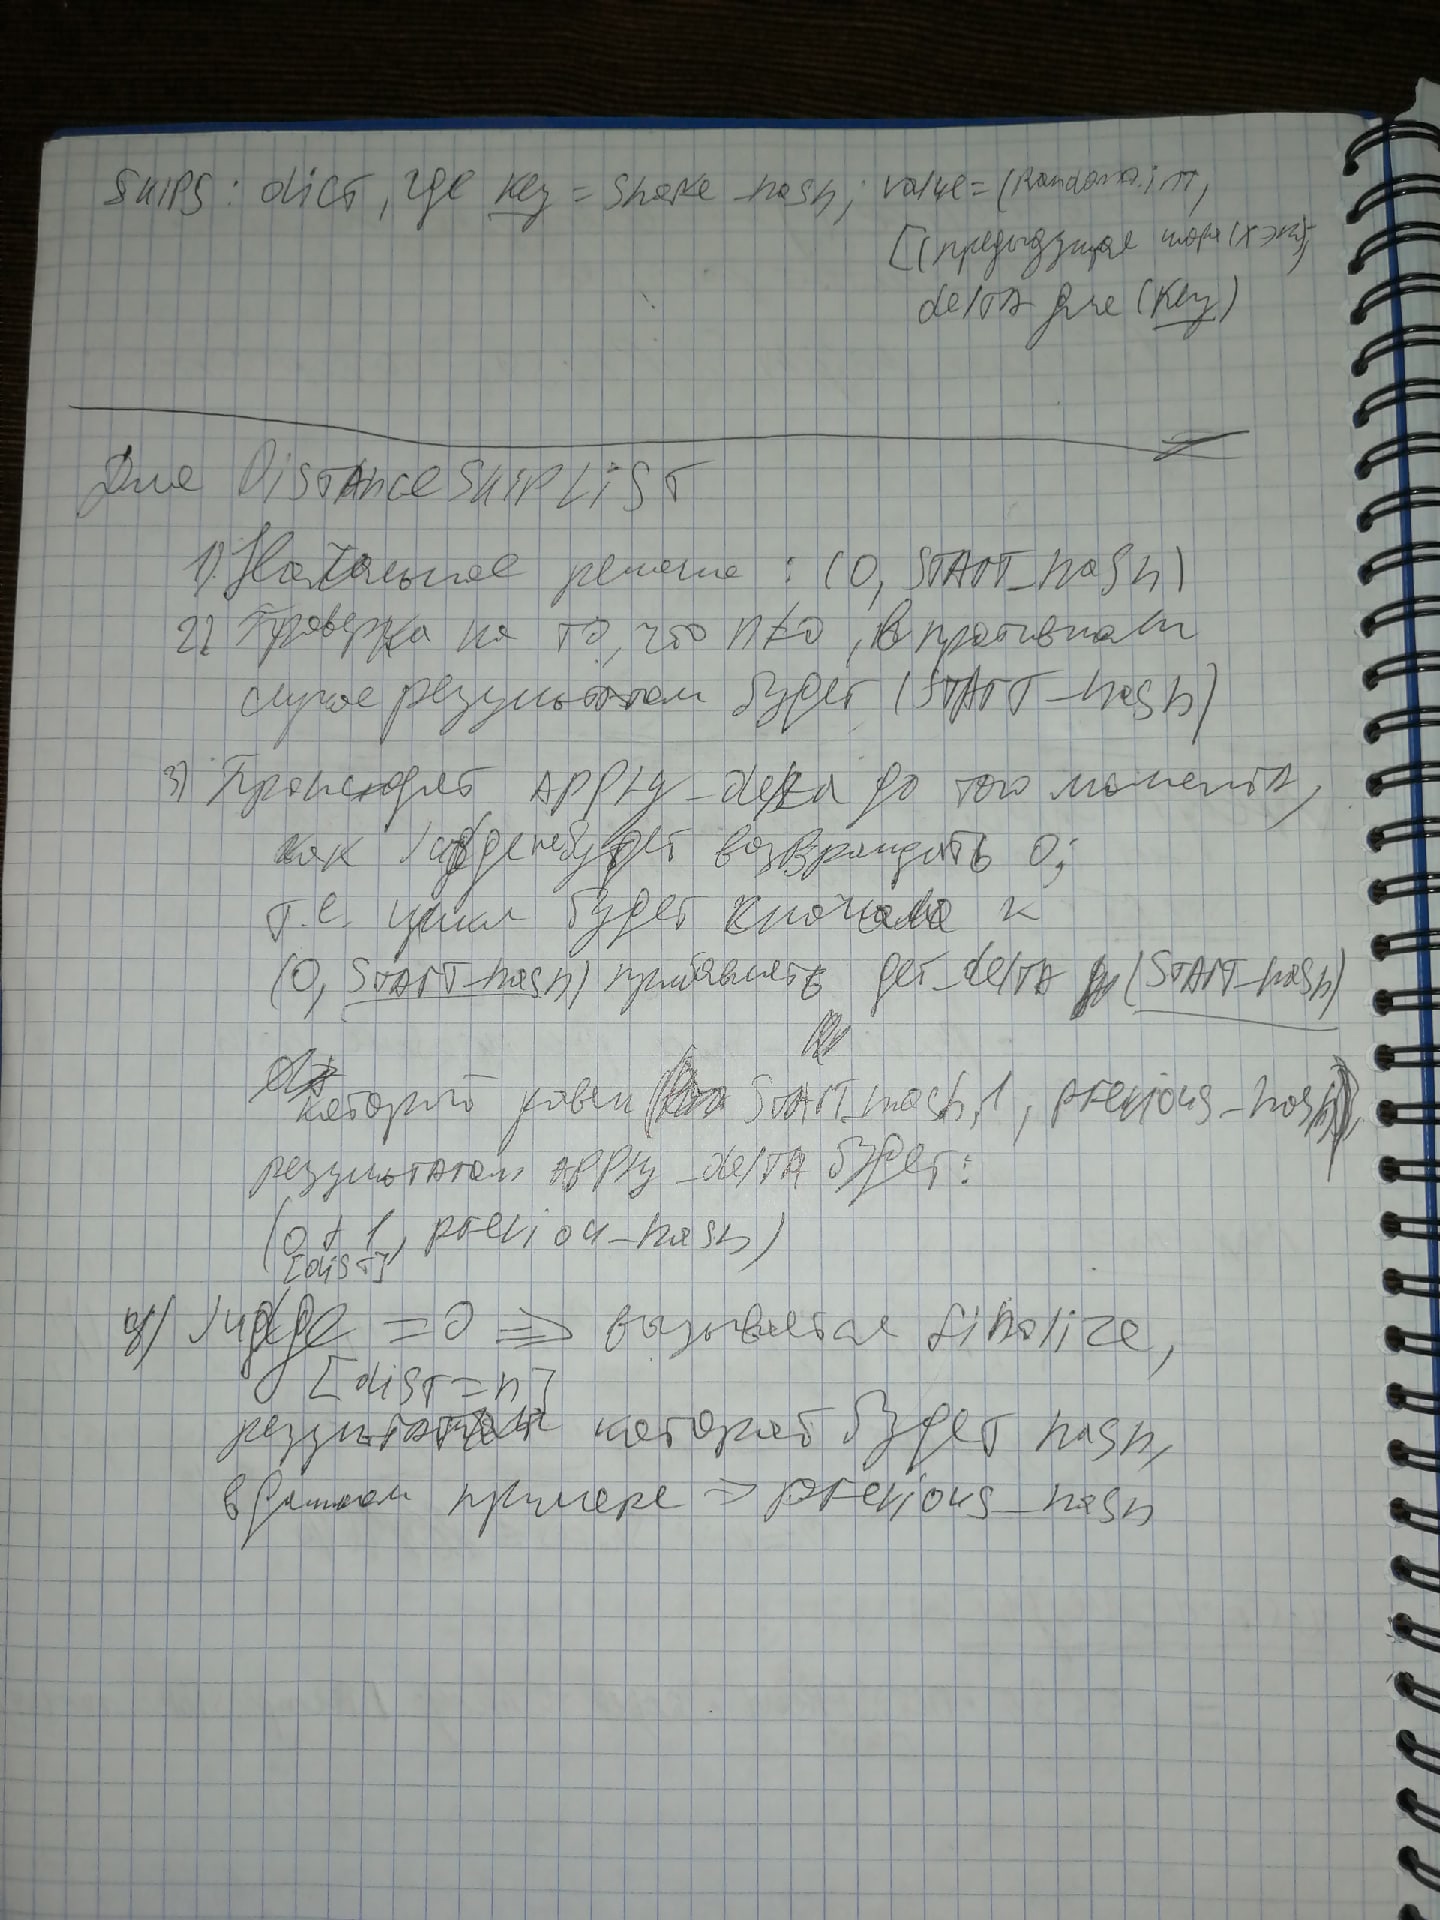 SKIPS: dict, где key = share_hash; value = (Random.int,
[(предыдущая шара (хэш);
delta для (key)
Для DISTANCE SKIP LIST
1) Начальное решение : (0, START_hash)
2) Проверка на то, что n≠0, в противном
случае результатом будет (START_hash)
3) Происходит APPLY_delta до того момента,
как judge не будет возвращать 0;
т.е. цикл будет сначала к
(0, START_hash) прибавлять get_delta (START_hash)
который равен START_hash, 1, previous_hash
результатом APPLY_delta будет:
(0 + 1, previou_hash)
[dist]
4) judge = 0 => вызывается finalize,
[dist = n]
результатом которой будет hash,
в данном примере => previous_hash